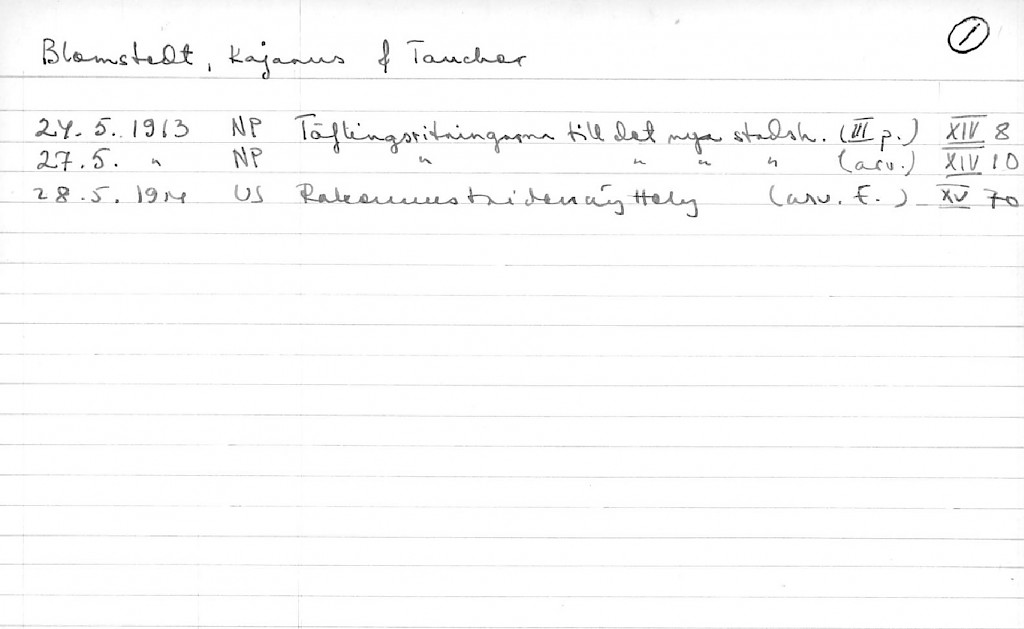 1
Blomstedt, Kajanus & Taucher
24. 5. 1913 NP Täflingsritningarna till det nya stadsh. (III p.) XIV 8
27. 5. " NP " " " " (arv.) XIV 10
28. 5. 1914 US Rakennustaidenäyttely (arv. E.) XV 70